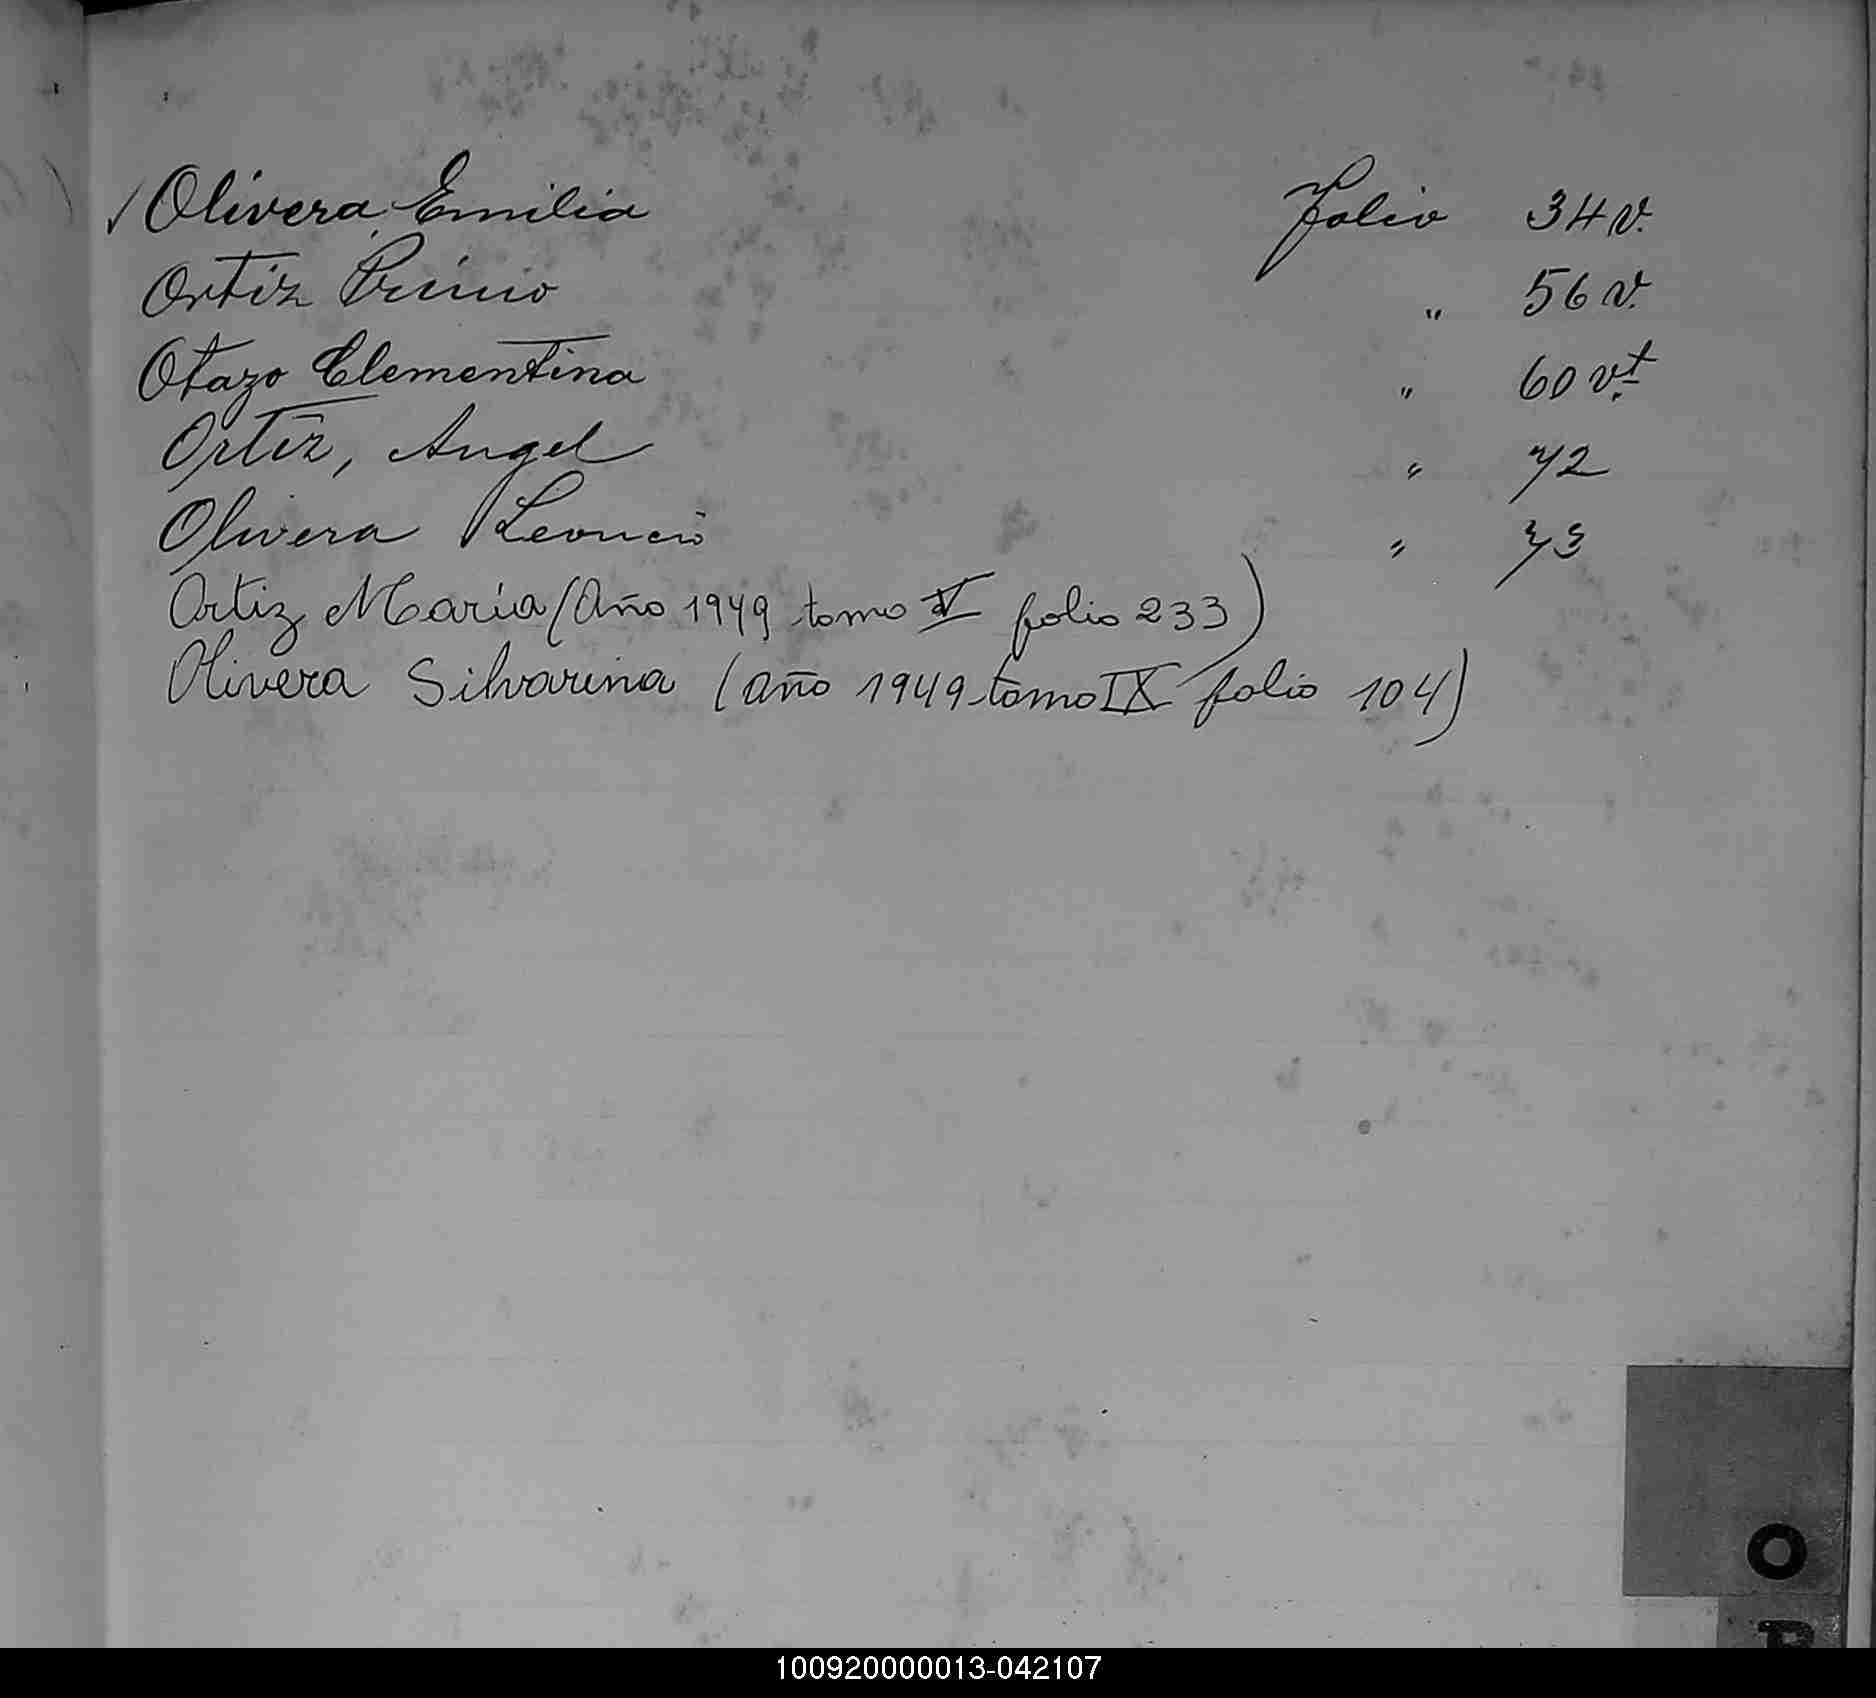 ✓ Olivera Emilia Folio 34 v.
Ortiz Primio " 56 v.
Otazo Clementina " 60 vt.
Ortiz, Angel " 72
Olivera Leoncio " 73
Ortiz María (Año 1949 tomo V folio 233)
Olivera Silvarina (año 1949 tomo IX folio 104)
O
P
100920000013-042107